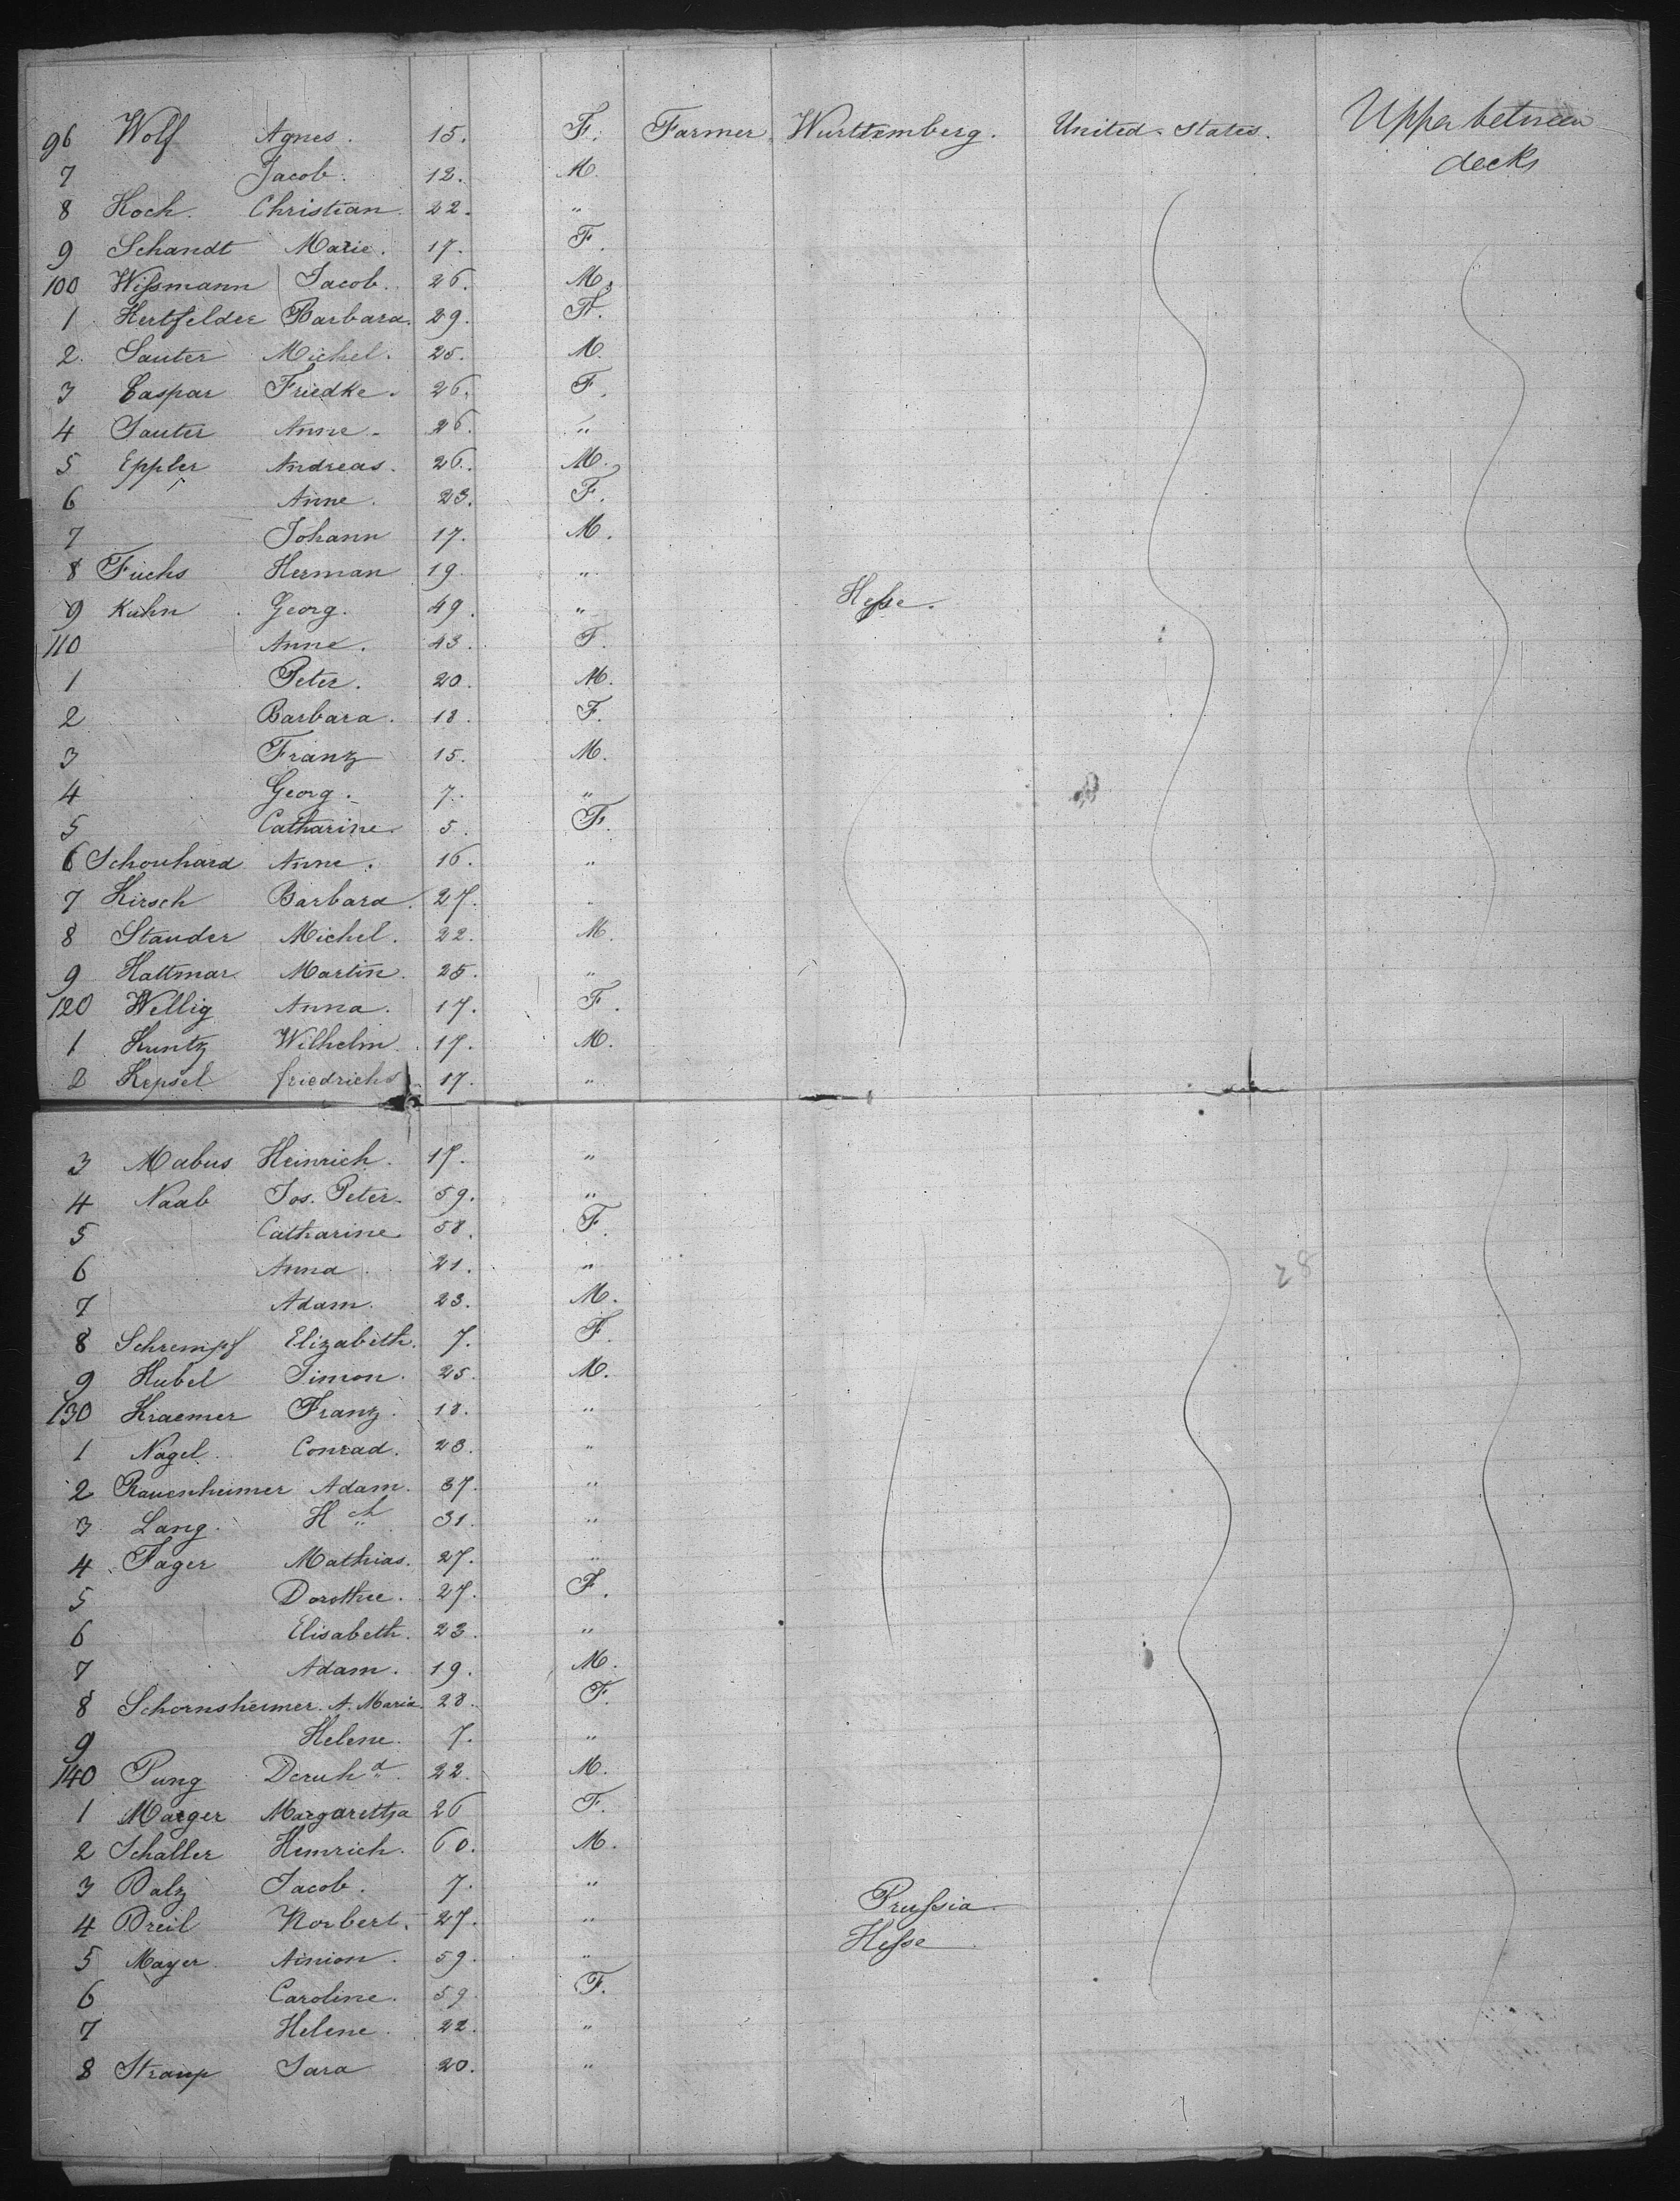 96 Wolf Agnes. 15. F. Farmer Wurttemberg. United States. Upper between
decks
7 Jacob. 12. M.
8 Koch. Christian. 22. "
9 Schandt Marie. 17. F.
100 Wissmann Jacob. 26. M.
1 Hertfelder Barbara. 29. F.
2. Sauter Michel. 25. M.
3 Caspar Friedke. 26. F.
4 Sauter Anne. 26. "
5 Eppler Andreas. 26. M.
6 Anne. 23. F.
7 Johann 17. M.
8 Fuchs Herman 19. "
9 Kuhn Georg. 49. " Hesse.
110 Anne. 43. F.
1 Peter. 20. M.
2 Barbara. 18. F.
3 Franz 15. M.
4 Georg. 7. "
5 Catharine. 5. F.
6 Schouhard Anne. 16. "
7 Hirsch Barbara. 27. "
8 Stauder Michel. 22. M.
9 Hattmar Martin. 25. "
120 Wellig Anna. 17. F.
1 Kuntz Wilhelm. 17. M.
2 Kepsel friedrichs 17. "
3 Mabus Heinrich. 17. "
4 Naab Jos. Peter. 59. "
5 Catharine. 58. F.
6 Anna 21. "
7 Adam. 23. M.
8 Schrempf Elizabeth. 7. F.
9 Hubel Simon. 25. M.
130 Kraemer Franz. 18. "
1 Nagel. Conrad. 23. "
2 Rauenheimer Adam. 37. "
3 Lang. Hch 31. "
4 Fager Mathias. 27. "
5 Dorothee. 27. F.
6 Elisabeth. 23. "
7 Adam. 19. M.
8 Schornsheimer. A. Maria. 28. F.
9 Helene. 7. "
140 Pung 22. M.
1 Marger Margarettha 26 F.
2 Schaller Heinrich. 60. M.
3 Dalz Jacob. 7. "
4 Dreil Norbert. 27. " Prussia.
5 Mayer. Ainion. 59. " Hesse
6 Caroline. 59. F.
7 Helene. 22. "
8 Straup Sara 20. "
28